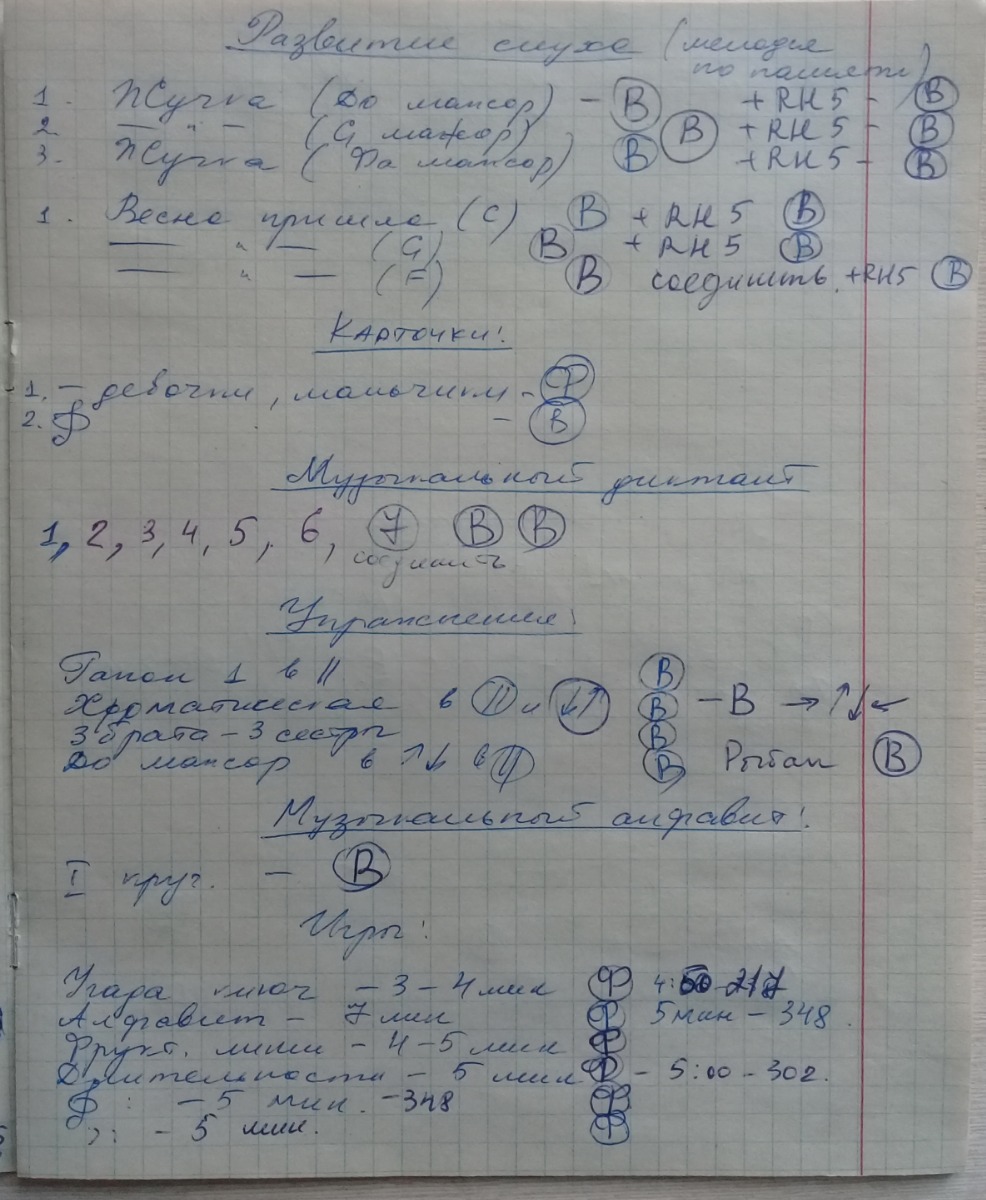 Развитие слуха (мелодия
по памяти)
1. Жучка (До мажор) - В + RH 5 - В
2. — " — (G мажор) В + RH 5 - В
3. Жучка (Фа мажор) В + RH 5 - В
1. Весна пришла (C) В + RH 5 В
— " — (G) В + RH 5 В
— " — (F) В соединить. + RH5 В
Карточки!
1. - девочки, мальчики - Ф
2. - В
Музыкальный диктант
1, 2, 3, 4, 5, 6, 7 В В
соединить
Упражнения:
Ганон 1 в II В
Хроматическая в II и ↓↑ В - В → ↑↓ ←
3 брата - 3 сестры В
До мажор в ↑↓ в В Рыбак В
Музыкальный алфавит!
I круг. - В
Игры:
Угада ключ - 3 - 4 мин Ф
Алфавит - 7 мин Ф 5 мин - 348.
Фрукт. - 4 - 5 мин Ф
Длительности - 5 мин Ф - 5:00 - 302.
: - 5 мин. - 348 Ф
: - 5 мин. Ф